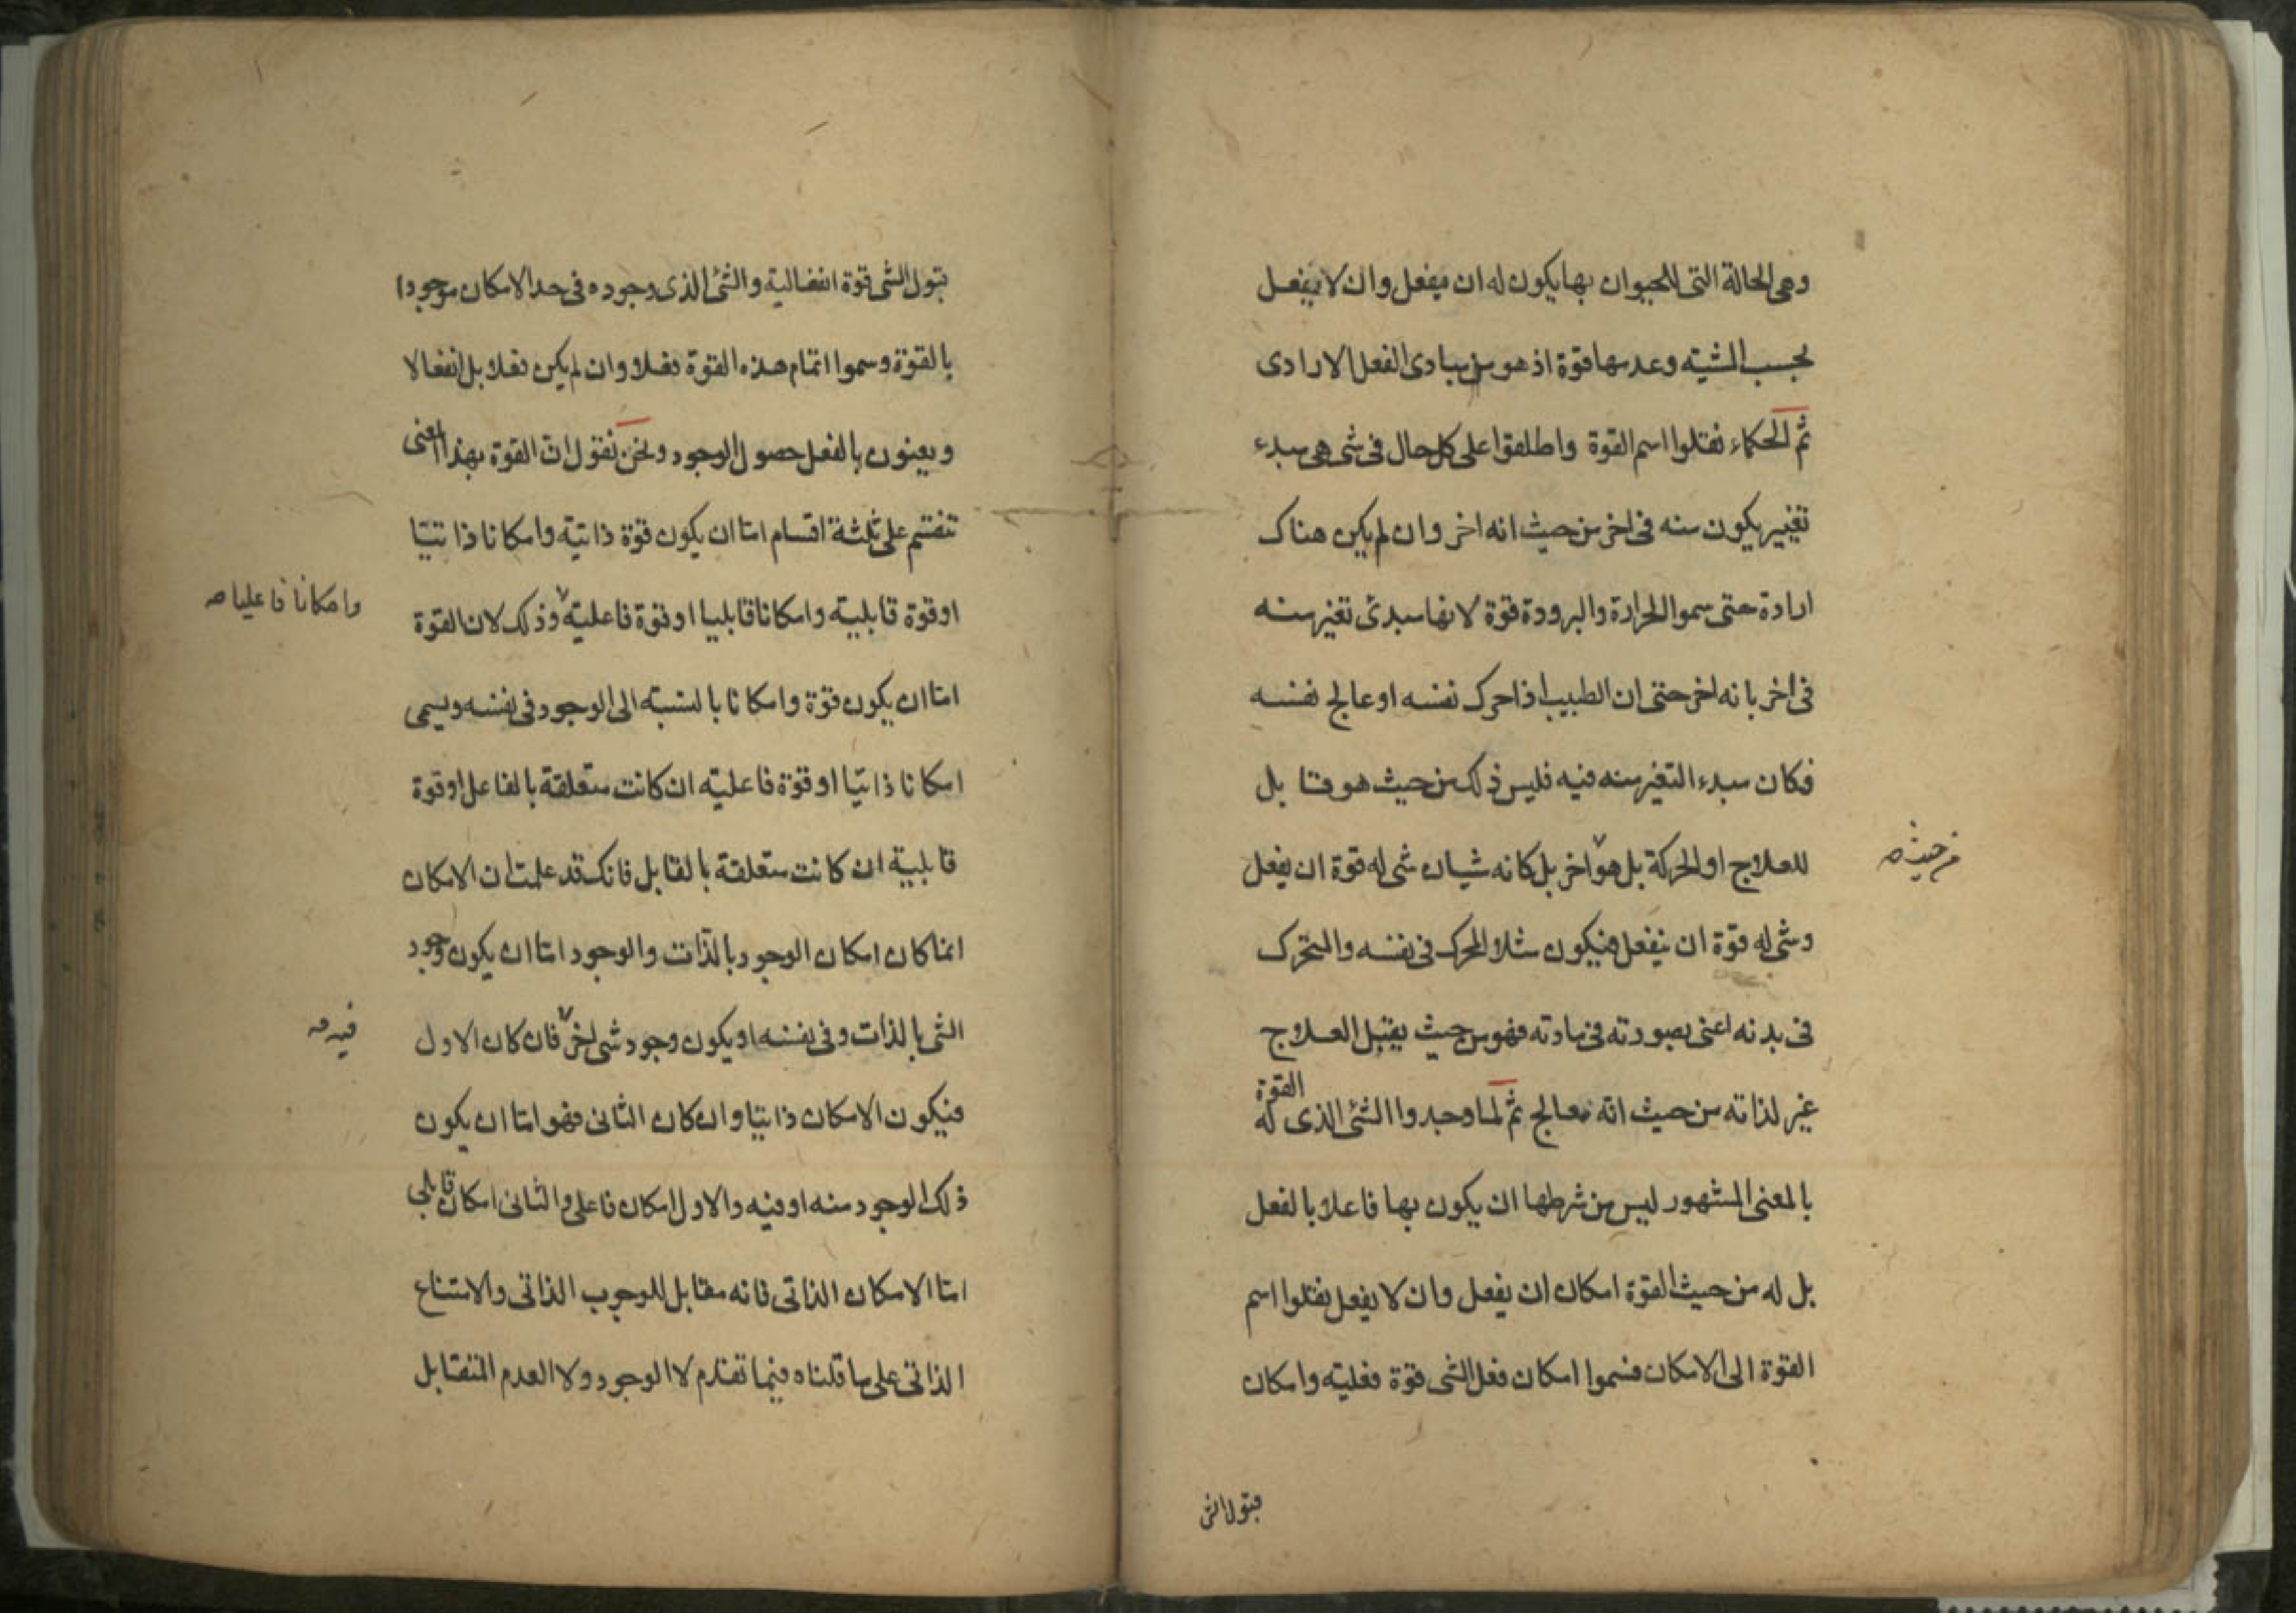 وهى الحالة التى للحيوان بها يكون له ان يفعل وان لا يفعل
بحسب المشية وعدمها قوة اذ هو من مبادى الفعل الارادى
ثم الحكماء نقلوا اسم القوة واطلقوا على كل حال فى شى هى مبدء
تغيير يكون منه فى اخر من حيث انه اخر وان لم يكن هناك
ارادة حتى سموا الحرارة والبرودة قوة لانها مبدئ تغير منه
فى اخر بانه اخر حتى ان الطبيب اذا حرك نفسه او عالج نفسه
فكان مبدء التغير منه فيه فليس ذلك من حيث هو قابل
للعلاج او الحركة بل هو اخر بل كانه شيان شى له قوة ان يفعل
من حيث
وشى له قوة ان ينفعل فيكون مثلا المحرك فى نفسه والمتحرك
فى بدنه اعنى بصورته فى مادته فهو من حيث يقبل العلاج
غير لذاته من حيث انه معالج ثم لما وجدوا الشئ الذى له القوة
بالمعنى المشهور ليس من شرطها ان يكون بها فاعلا بالفعل
بل له من حيث القوة امكان ان يفعل وان لا يفعل نقلوا اسم
القوة الى الامكان فسموا امكان فعل الشى قوة فعلية وامكان
قبول الش
قبول الشى قوة انفعالية والشئ الذى وجوده فى حد الامكان موجودا
بالقوة وسموا اتمام هذه القوة فعلا وان لم يكن فعلا بل انفعالا
ويعنون بالفعل حصول الوجود ونحن نقول ان القوة بهذا المعنى
تنقسم على ثلثة اقسام اما ان يكون قوة ذاتية وامكانا ذاتيا
او قوة قابلية وامكانا قابليا او قوة فاعلية وذلك لان القوة
وامكانا فاعليا
اما ان يكون قوة وامكانا بالنسبة الى الوجود فى نفسه ويسمى
امكانا ذاتيا او قوة فاعلية ان كانت متعلقة بالفاعل او قوة
قابلية ان كانت متعلقة بالقابل فانك قد علمت ان الامكان
انما كان امكان الوجود بالذات والوجود اما ان يكون وجود
الشى بالذات وفى نفسه او يكون وجود شى اخر فان كان الاول
فيه
فيكون الامكان ذاتيا وان كان الثانى فهو اما ان يكون
ذلك الوجود منه او فيه والاول امكان فاعلى والثانى امكان قابلى
اما الامكان الذاتى فانه مقابل للوجوب الذاتى والامتناع
الذاتى على ما قلناه فيما تقدم لا الوجود ولا العدم المتقابل